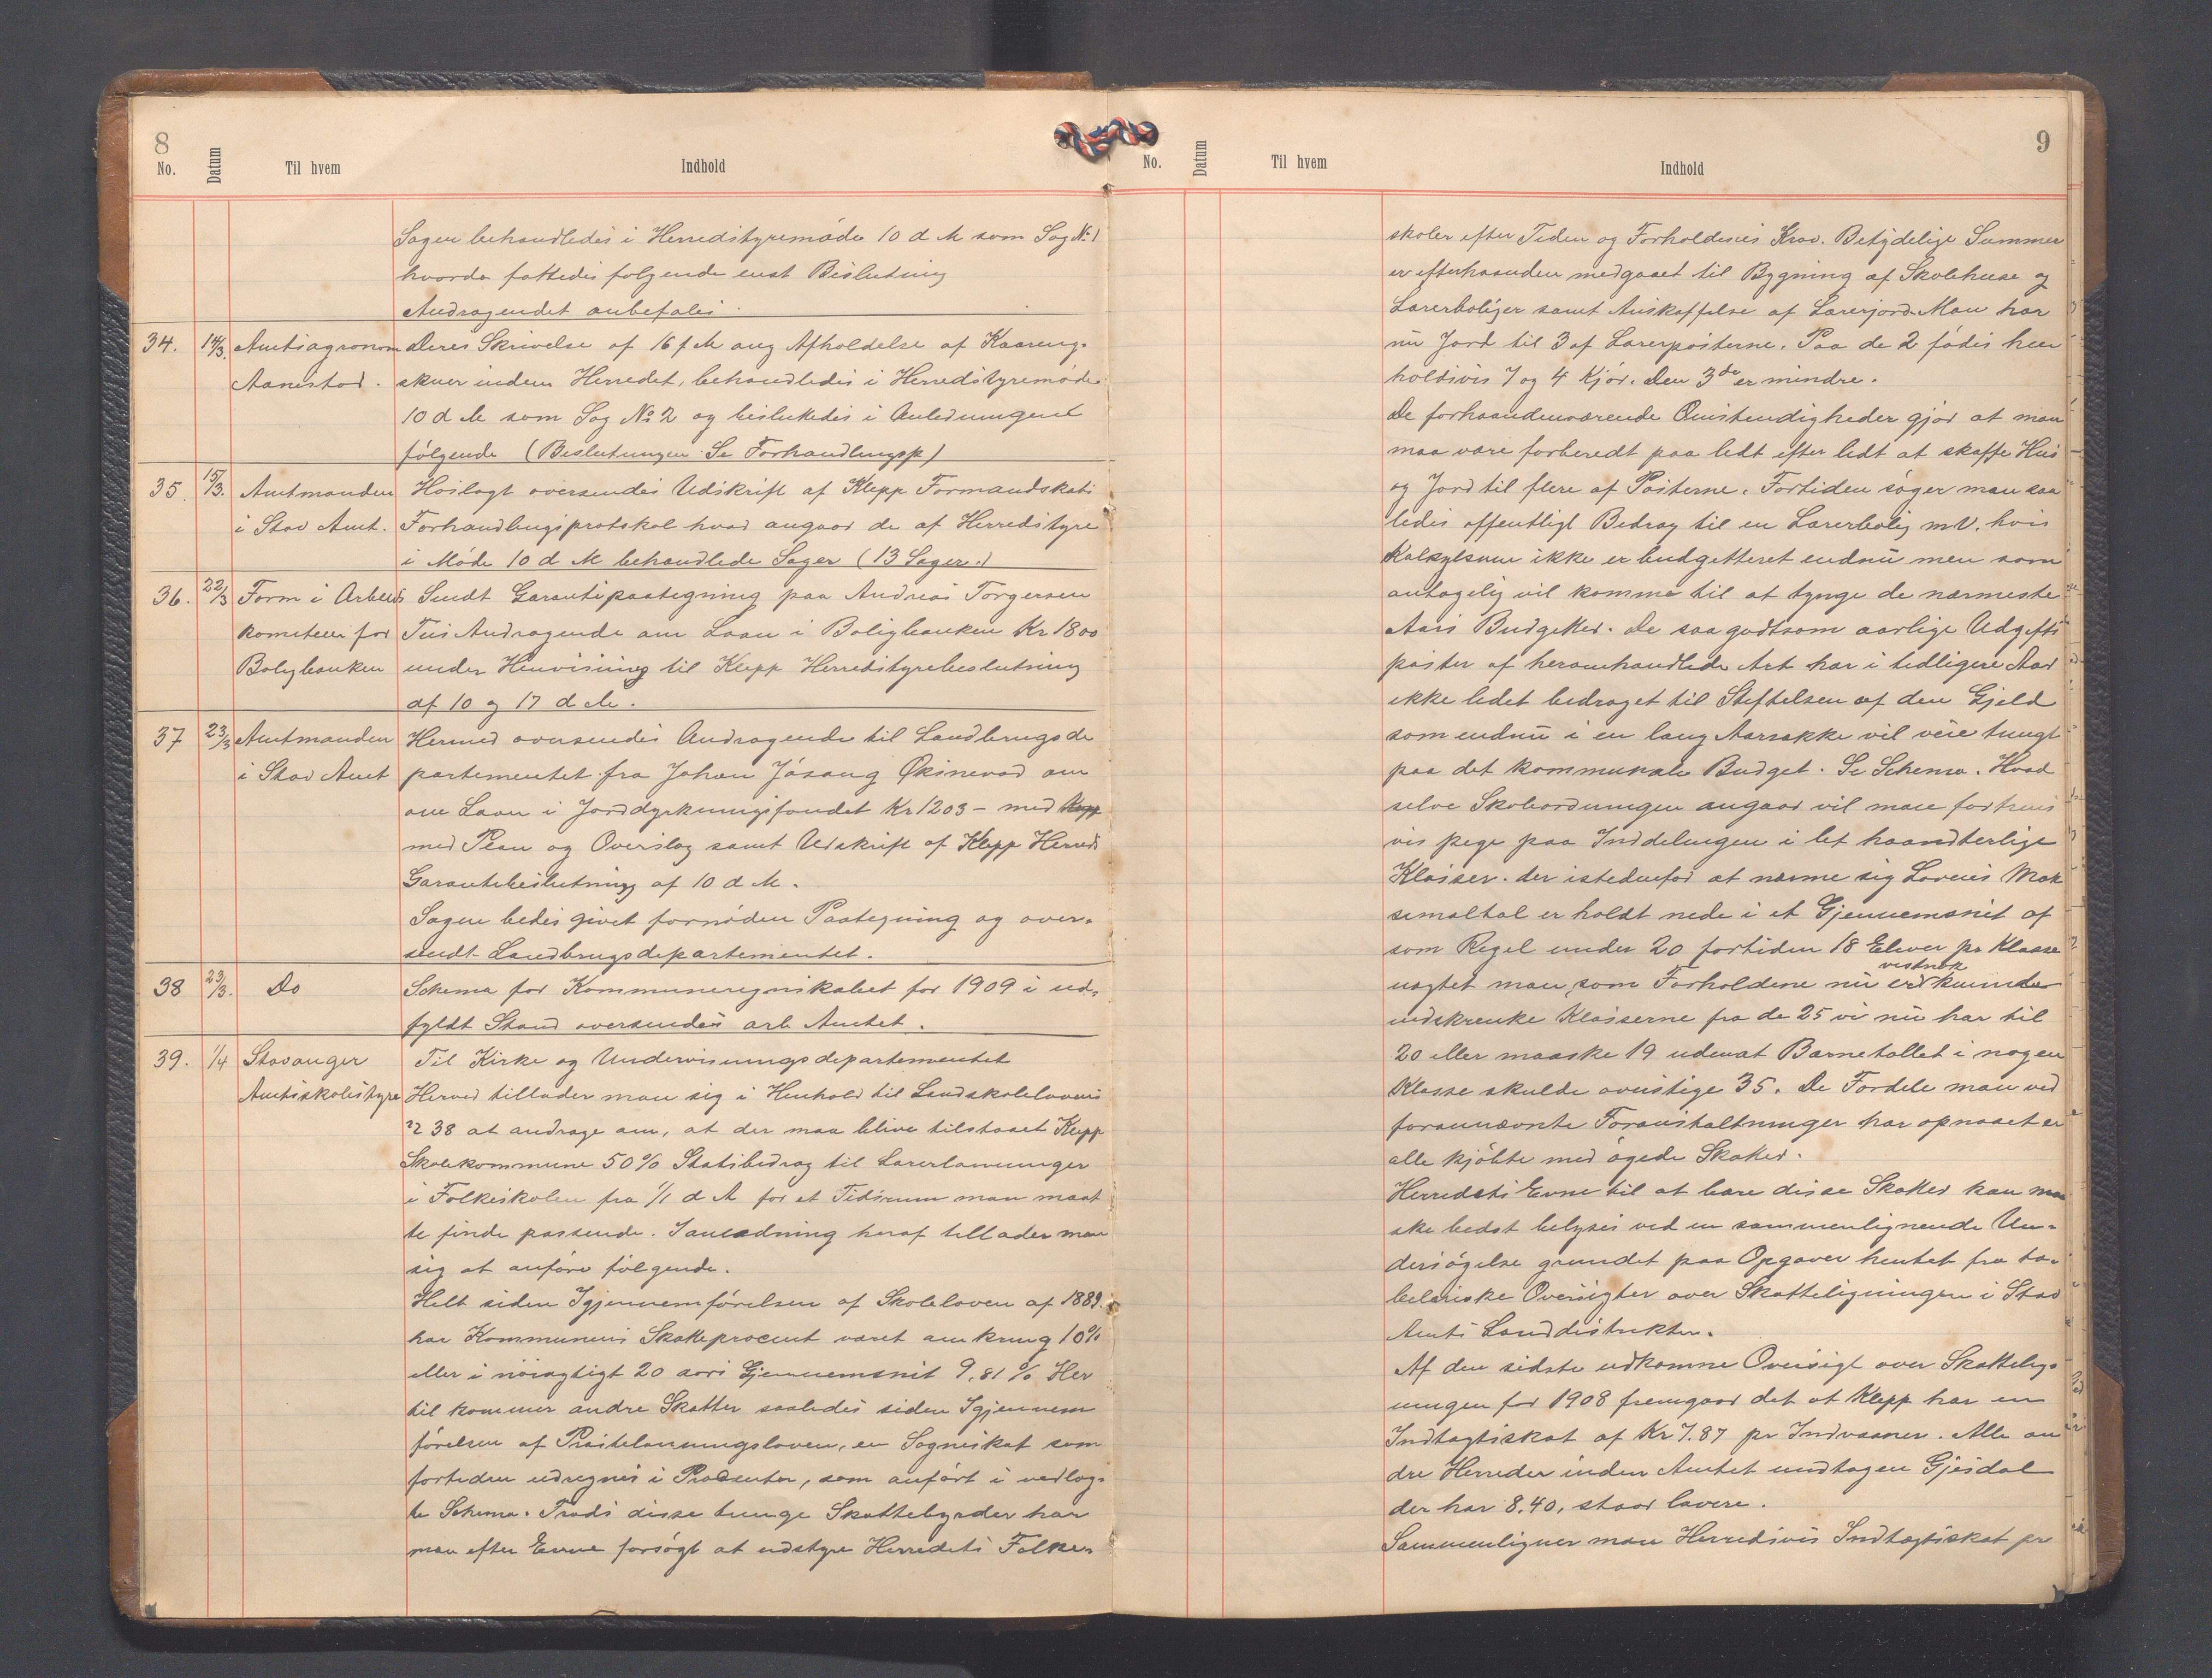 8
No. Datum Til hvem Indhold
Sagen behandledes i Herredstyremøde 10 d M som Sag № 1
hvorda fattedes følgende enst Beslutning
Andragendet anbefales.
34. 14/3. Amtsagronom Deres Skrivelse af 16 f M ang Afholdelse af Kaarings-
Aanestad. skuer inden Herredet, behandledes i Herredstyremøde
10 d M som Sag № 2 og beslutedes i Anledningen
følgende (Beslutningen Se Forhandlingsp)
35. 15/3. Amtmanden Hoslagt oversendes Udskrift af Klepp Formandskabs
i Stav Amt. Forhandlingsprotokol hvad angaar de af Herredstyre
i Møde 10 d M behandlede Sager (13 Sager.)
36. 22/3 Form i Arbeids Sendt Garantipaategning paa Andreas Torgersen
komiteen for Tus Andragende om Laan i Boligbanken Kr 1800
Boligbanken under Henvisning til Klepp Herredstyrebeslutning
af 10 og 17 d M.
37 23/3 Amtmanden Hermed oversendes Andragende til Landbrugsde
i Stav Amt partementet fra Johan Jåsang Øksnevad om
om Laan i Jorddyrkningsfondet Kr 1203 – med Klepp
med Plan og Overslag samt Udskrift af Klepp Herreds
Garantibeslutning af 10 d M.
Sagen bedes givet fornøden Paategning og over-
sendt Landbrugsdepartementet.
38 23/3. Do Schema for Kommuneregnskabet for 1909 i ud-
fyldt Stand oversendes arb Amtet.
39. 1/4 Stavanger Til Kirke og Undervisningsdepartementet
Amtsskolestyre Herved tillader man sig i Henhold til Landskolelovens
§ 38 at andrage om, at der maa blive tilstaaet Klepp
Skolekommune 50% Statsbidrag til Lærerlønninger
i Folkeskolen fra 1/1 d A for et Tidsrum man maat
te finde passende. I anledning heraf tillader man
sig at anføre følgende.
Helt siden Igjennemførelsen af Skoleloven af 1889.
har Kommunens Skatteprocent været omkring 10%
eller i nøiagtigt 20 aars Gjennemsnit 9,81 % Her
til kommer andre Skatter saaledes siden Igjennem
førelsen af Præstelønningsloven, en Sogneskat som
fortiden udregnes i Procenter, som anført i vedlag-
te Schema. Trods disse tunge Skattebyrder har
man efter Evne forsøgt at udstyre Herredets Folke-
9
No. Datum Til hvem Indhold
skoler efter Tiden og Forholdenes Krav. Betydelige Summer
er efterhaanden medgaaet til Bygning af Skolehuse og
Lærerboliger samt Anskaffelse af Lærerjord. Man har
nu Jord til 3 af Lærerposterne. Paa de 2 fødes hen
holdsvis 7 og 4 Kjør. Den 3de er mindre.
De forhaandenværende Omstendigheder gjør at man
maa være forberedt paa lidt efter lidt at skaffe Hus
og Jord til flere af Posterne. Fortiden søger man saa
ledes offentligt Bidrag til en Lærerbolig m.V. hvis
Kalkylsum ikke er budgetteret endnu men som
antagelig vil komme til at tynge de nærmeste
Aars Budgetter. De saa godtsom aarlige Udgifts
poster af heromhandlede Art har i tidligere Aar
ikke lidet bidraget til Stiftelsen af den Gjeld
som endnu i en lang Aarrække vil veie tungt
paa det kommunale Budget. Se Schema. Hvad
selve Skoleordningen angaar vil man fortrins
vis pege paa Inddelingen i let haandterlige
Klasser. der istedenfor at nærme sig Lovens Mak
simaltal er holdt nede i et Gjennemsnit af
som Regel under 20 fortiden 18 Elever pr Klasse
uagtet man, som Forholdene nu er vistnok kunde
indskrenke Klasserne fra de 25 vi nu har til
20 eller maaske 19 udenat Barnetallet i nogen
Klasse skulde overstige 35. De Fordele man ved
forannævnte Foranstaltninger har opnaaet er
alle kjøbte med øgede Skatter.
Herredets Evne til at bære disse Skatter kan maa
ske bedst belyses ved en sammenlignende Un-
dersøgelse grundet paa Opgaver hentet fra ta-
belariske Oversigter over Skatteligningen i Stav
Amts Landdistrikter.
Af den sidste udkomne Oversigt over Skattelig-
ningen for 1908 fremgaar det at Klepp har en
Indtægtsskat af Kr 7.87 pr Indvaaner. Alle an
dre Herreder inden Amtet undtagen Gjesdal
der har 8.40, staar lavere.
Sammenligner man Herredsvis Indtægtsskat pr